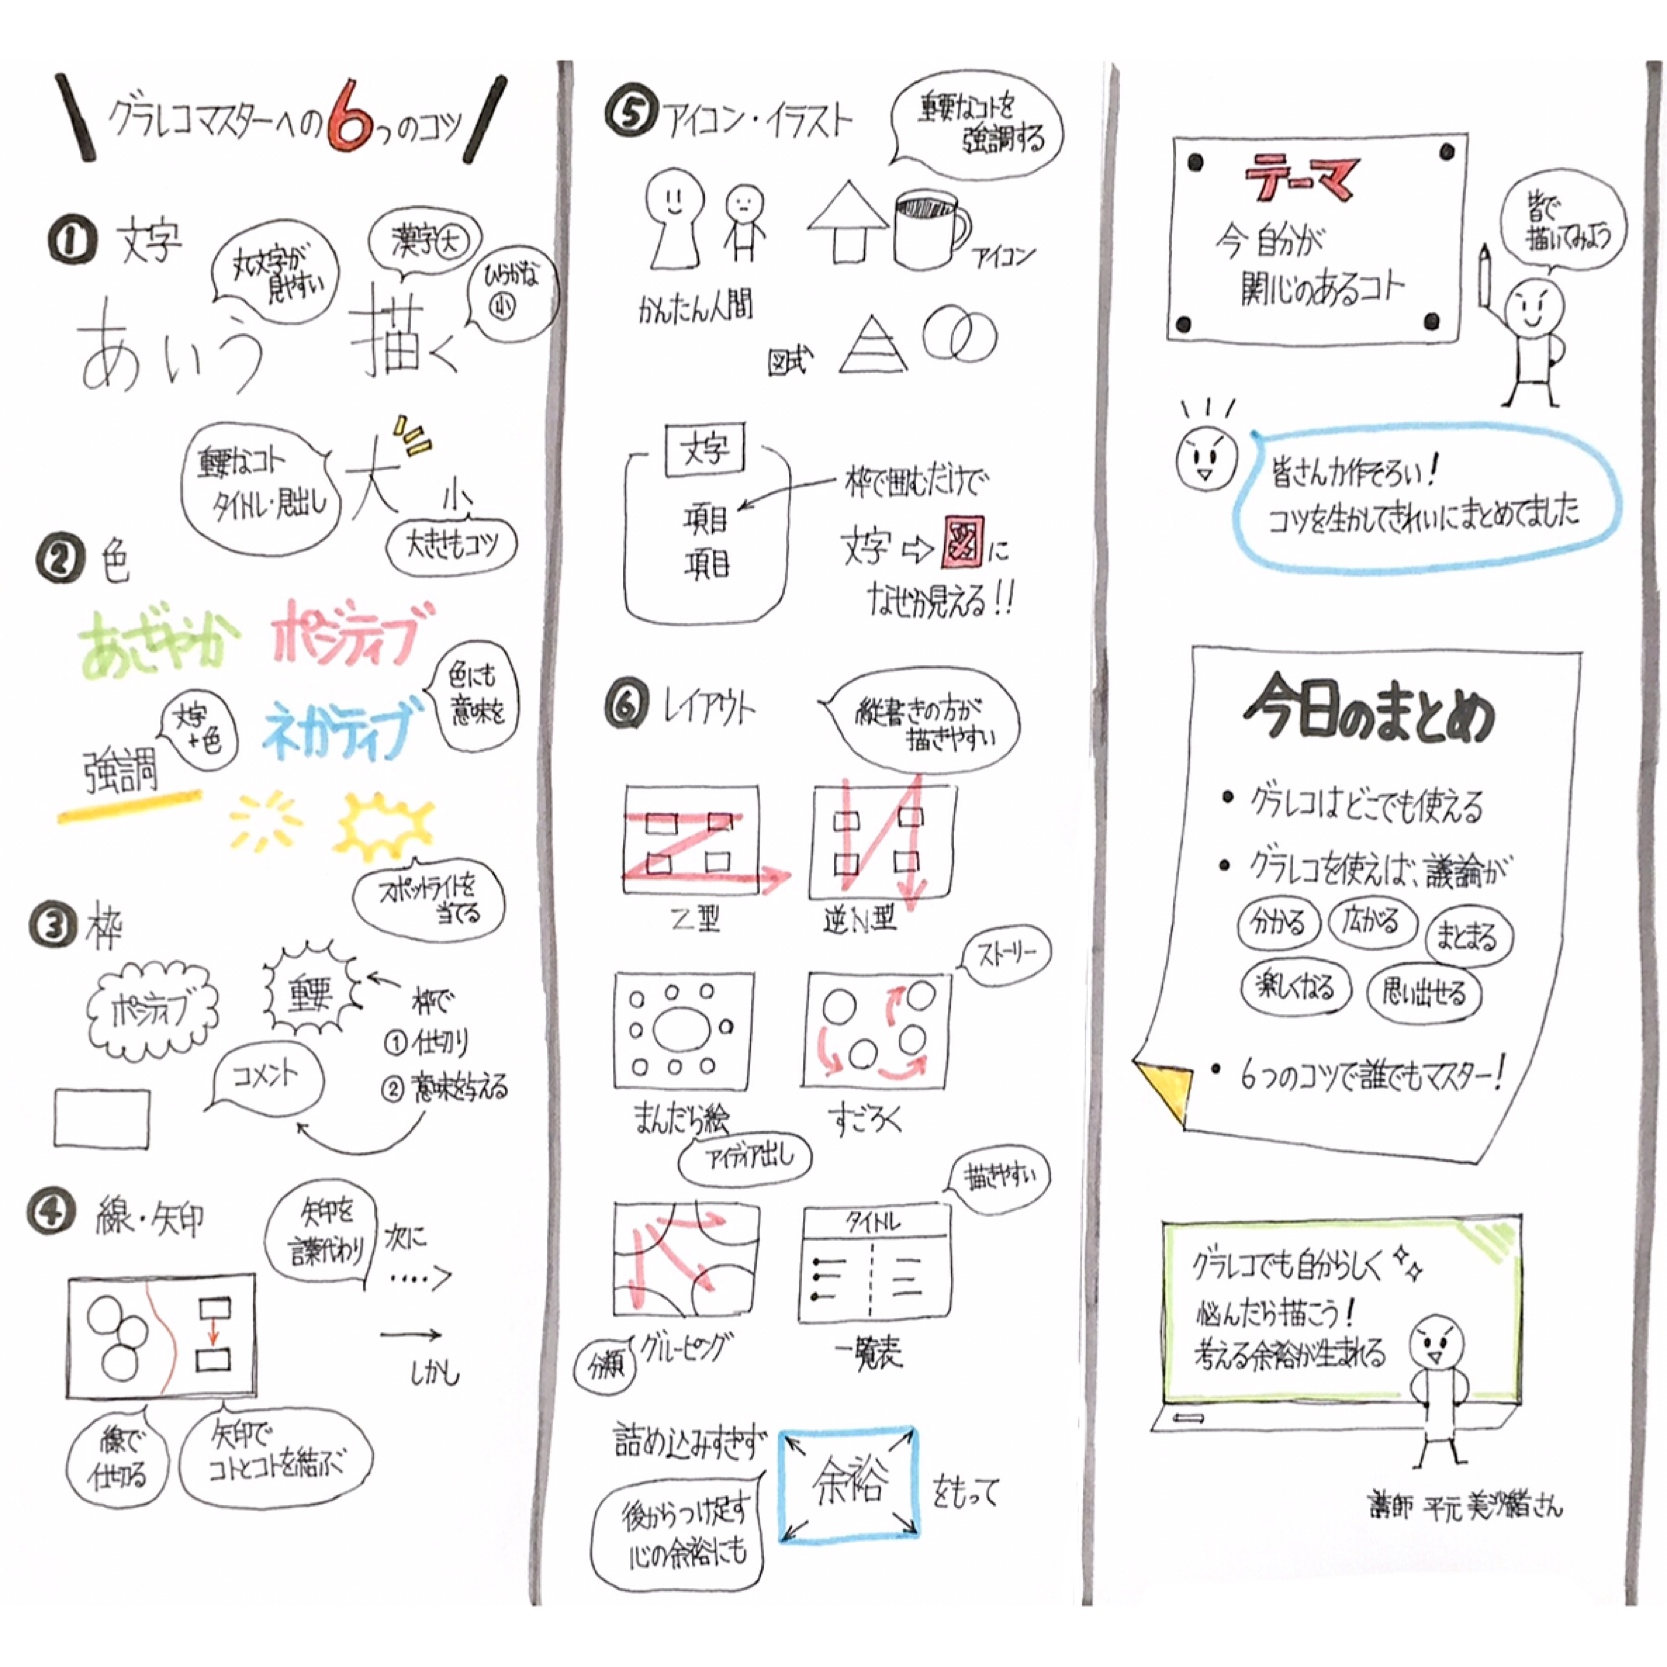 グラレコマスターへの6つのコツ
① 文字
丸文字が
見やすい
漢字大
ひらがな
小
あいう
描く
重要なコト
タイトル・見出し
大
小
大きさもコツ
② 色
あざやか
ポジティブ
色にも
意味を
文字
+色
ネガティブ
強調
スポットライトを
当てる
③ 枠
ポジティブ
重要
枠で
① 仕切り
② 意味を与える
コメント
④ 線・矢印
矢印を
言葉代わり
次に
しかし
線で
仕切る
矢印で
コトとコトを結ぶ
⑤ アイコン・イラスト
重要なコトを
強調する
かんたん人間
アイコン
図式
文字
項目
項目
枠で囲むだけで
文字⇨図に
なぜか見える!!
⑥ レイアウト
縦書きの方が
描きやすい
Z型
逆N型
ストーリー
まんだら絵
アイディア出し
すごろく
描きやすい
タイトル
分類
グルーピング
一覧表
詰め込みすぎず
余裕
をもって
後からつけ足す
心の余裕にも
テーマ
今 自分が
関心のあるコト
皆で
描いてみよう
皆さん力作ぞろい!
コツを生かしてきれいにまとめてました
今日のまとめ
・グラレコはどこでも使える
・グラレコを使えば、議論が
分かる
広がる
まとまる
楽しくなる
思い出せる
・6つのコツで誰でもマスター!
グラレコでも自分らしく
悩んだら描こう!
考える余裕が生まれる
講師 平元 美沙緒さん